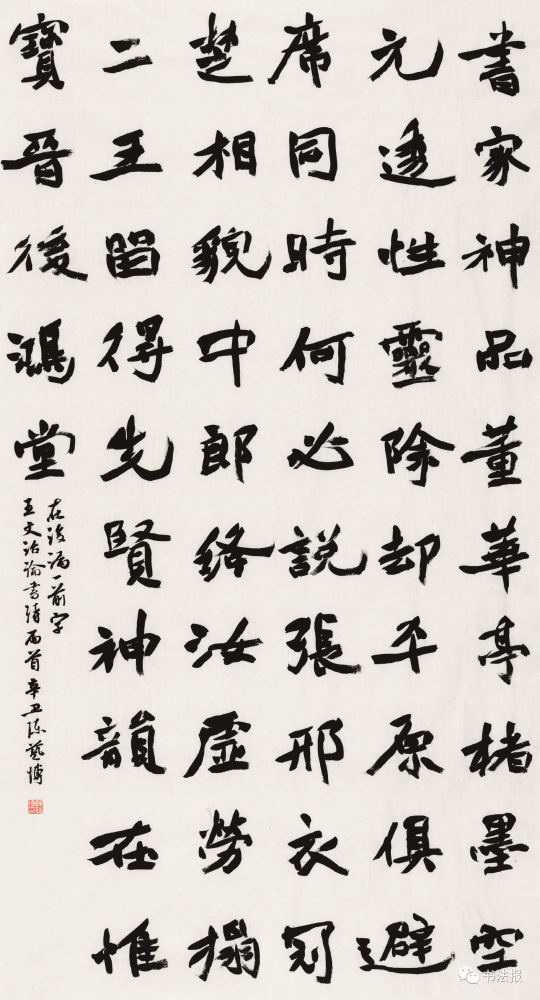 書家神品董華亭楮墨空
元透性靈除却平原俱避
席同時何必説張邢衣冠
楚相貌中郎絳汝虛勞搨
二王留得先賢神韻在惟
寶晉後鴻堂
在後漏一前字
王文治論書詩兩首辛丑陳藝博
书法报